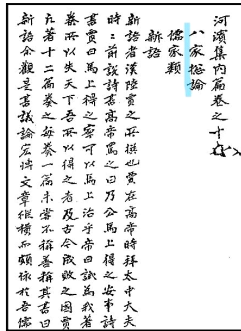 河濱集內篇卷之十
八家總論
儒家類
新語
新語者漢陸賈之所撰也賈在高帝時拜太中大夫
時時前說詩書高帝罵之曰乃公馬上得之安事詩
書賈曰馬上得之寧可以馬上治乎帝曰試為我著
秦所以失天下吾所以得之者及古今成敗之因賈
凡著十二篇奏之每奏一篇未嘗不稱善稱其書曰
新語今觀是書議論宏博文章縱橫而頗離於吾儒